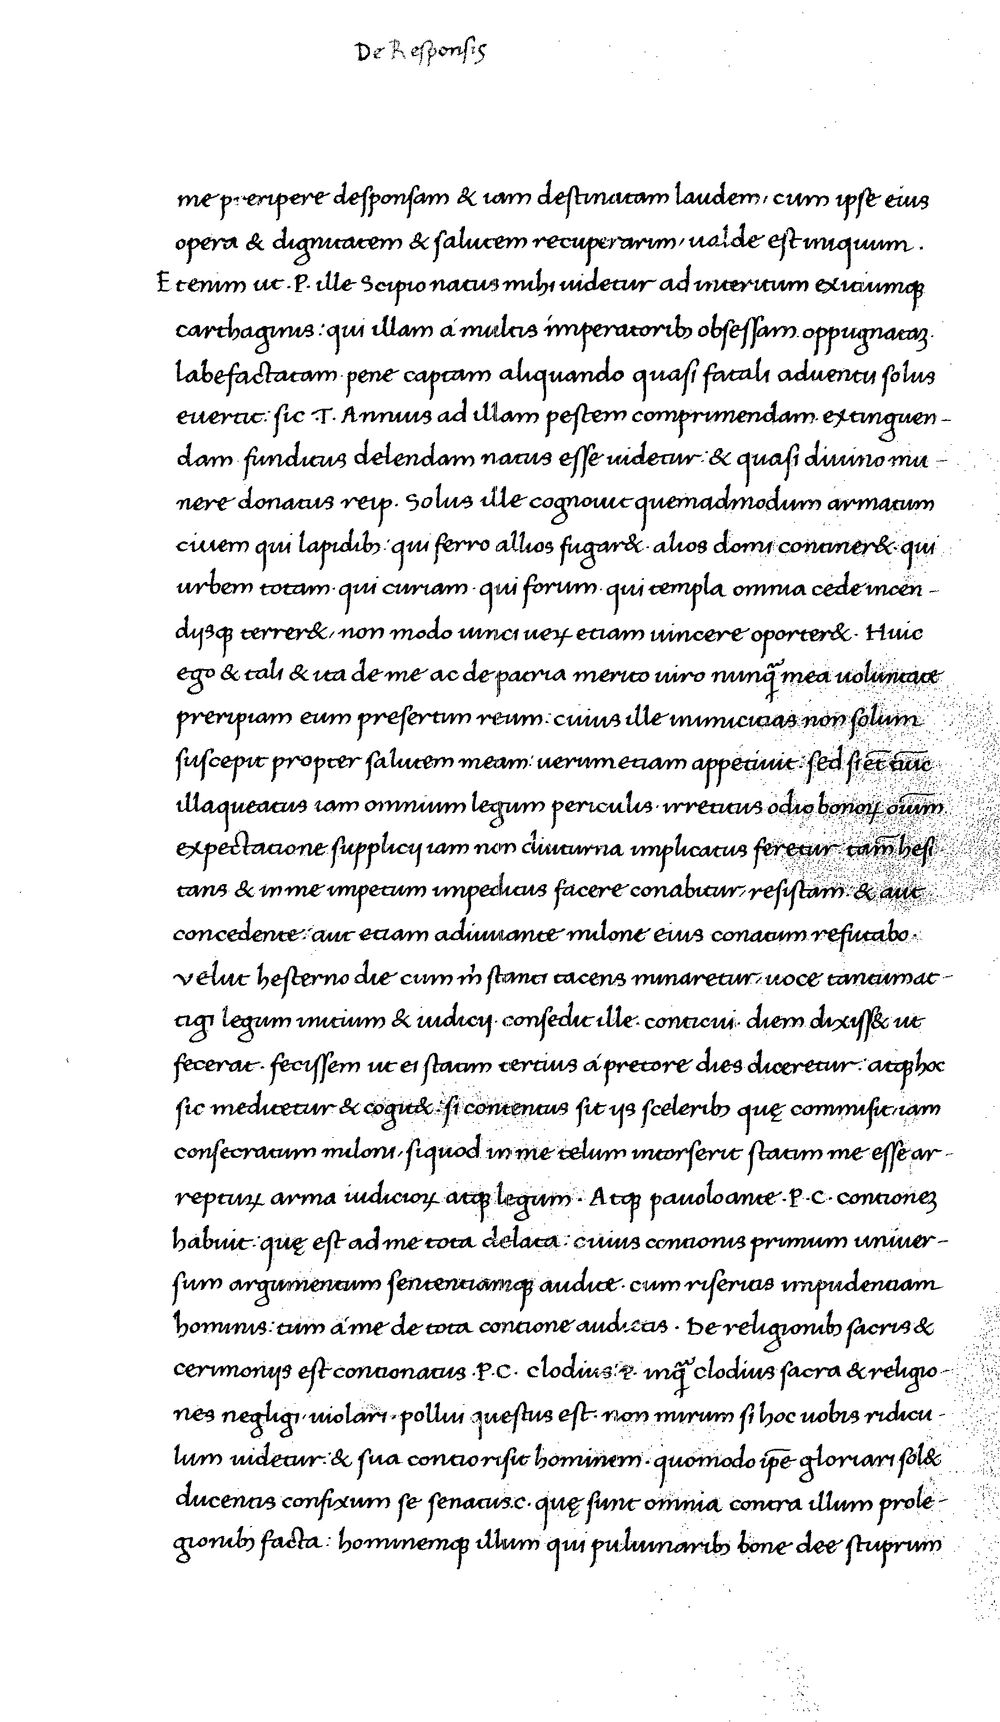 De Responsis
me preripere desponsam & iam destinatam laudem, cum ipse eius
opera & dignitatem & salutem recuperarim, ualde est iniquum.
Etenim ut .P. ille Scipio natus mihi uidetur ad interitum exitiumq;
carthaginis: qui illam á multis ímperatorib; obsessam oppugnataʒ.
labefactatam pene captam aliquando quasi fatali aduentu solus
euertit: sic .T. Annius ad illam pestem comprimendam extinguen-
dam funditus delendam natus esse uidetur: & quasi diuino mu-
nere donatus reip. Solus ille cognouit quemadmodum armatum
ciuem qui lapidib; qui ferro allios fugar&. alios domi contíner&. qui
urbem totam. qui curiam. qui forum. qui templa omnia cede incen-
dijsq; terrer&, non modo uinci ueꝝ etiam uincere oporter&. Huic
ego & tali & ita de me ac de patria merito uiro nunq̃ mea uoluntate
preripiam eum presertim reum: cuius ille inimicitias non solum
suscepit propter salutem meam: uerum etiam appetiuit: sed si et̄ tūc
illaqueatus iam omnium legum periculis. irretitus odio bonoꝝ oīum
expectatione supplicij iam non diuturna implicatus feretur tam̄ hesi
tans & in me impetum impeditus facere conabitur, resistam. & aut
concedente: aut etiam adiuuante milone eius conatum refutabo.
Velut hesterno die cum m̉ stanti tacens minaretur, uoce tantum at-
tigi legum initium & iudicij. consedit ille. conticui. diem dixiss& ut
fecerat. fecissem ut ei statim tertius á pretore dies diceretur: atq; hoc
sic meditetur & cogit&: si contentus sit ijs scelerib; quę commisit, iam
consecratum miloni, siquod in me telum intorserit statim me esse ar-
repturꝝ arma iudicioꝝ atq; legum. Atq; pauolo ante .P.C. contioneʒ
habuit: quę est ad me tota delata: cuius contionis primum uniuer-
sum argumentum sententiamq; audite. cum riseritis impudentiam
hominis: tum á me de tota contione audietis. De religionib; sacris &
cerimonijs est contionatus .P.C. clodius: P. inq̃ clodius sacra & religio-
nes negligi, uiolari, pollui questus est. non mirum si hoc uobis ridicu-
lum uidetur: & sua contio risit hominem. quomodo ip̄e gloriari sol&
ducentis confixum se senatus.c. quę sunt omnia contra illum prole-
gionib; facta: hominemq; illum qui puluinarib; bone dee stuprum